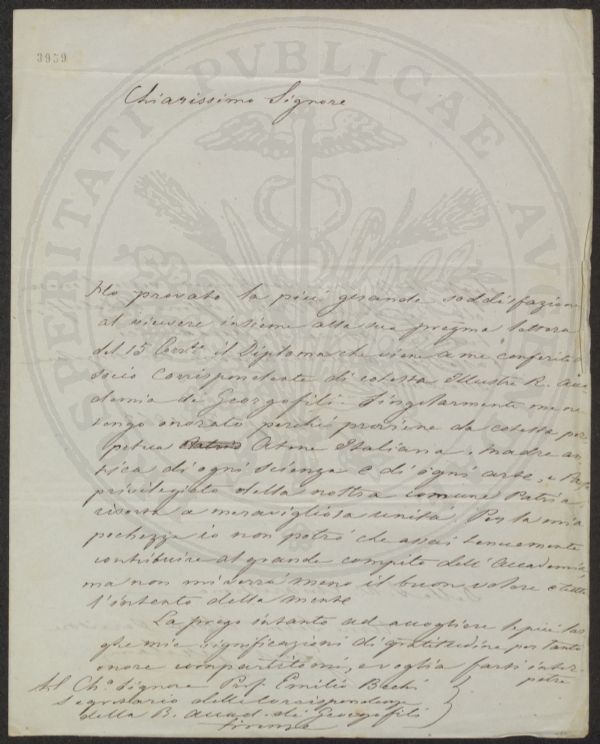 3939
PROSPERITATI PVBLICAE AVGENDAE
Chiarissimo Signore
Ho provato la più grande soddisfazione
al ricevere insieme alla sua pregma lettera
del 15 Corrte il Diploma che viene a me conferito di
socio corrispondente di cotesta Illustre R. Acca
demia de Georgofili. Singolarmente me ne
tengo onorato perchè proviene da cotesta per
petua Atene Italiana, madre an
tica di ogni scienza e di ogni arte, e
privilegiato della nostra comune Patria
risorta a maravigliosa unità. Per la mia
pochezza io non potrò che assai tenuemente
contribuire al grande compito dell'Accademia,
ma non mi verrà meno il buon volere e tutto
l'intento della mente
La prego intanto ad accogliere le più lar
ghe mie significazioni di gratitudine per tanto
onore compartitomi, e voglia farsi inter
petre
Al Cho Signore Prof. Emilio Bechi
Segretario delle Corrispondenze
della R. Accad. dei Georgofili
Firenze